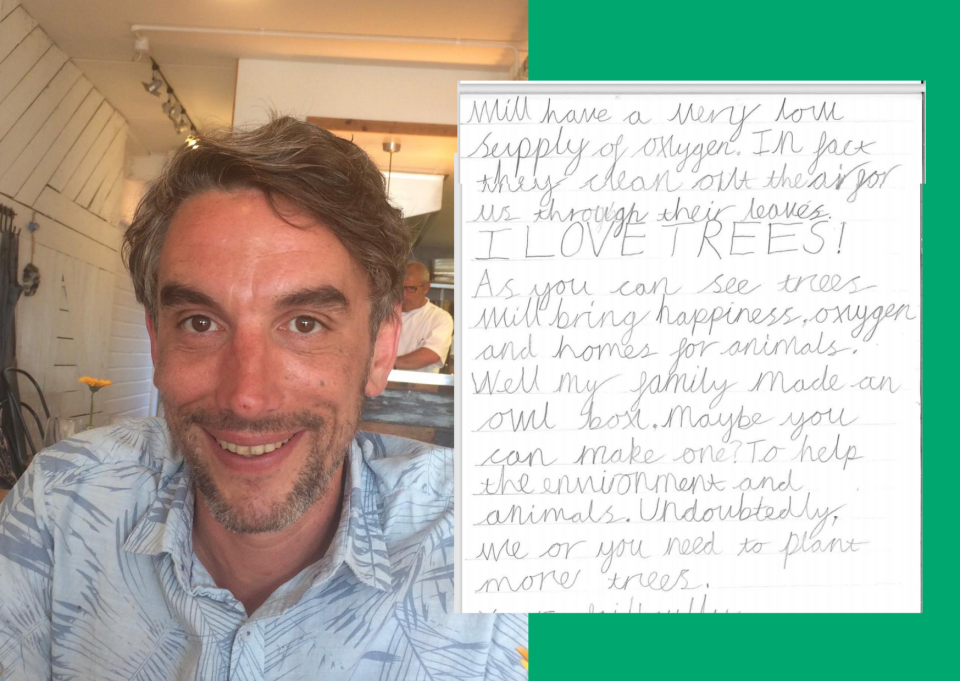 will have a very low
supply of oxygen. In fact
they clean out the air for
us through their leaves.
I LOVE TREES!
As you can see trees
will bring happiness, oxygen
and homes for animals.
Well my family made an
owl box. Maybe you
can make one? To help
the environment and
animals. Undoubtedly,
we or you need to plant
more trees.